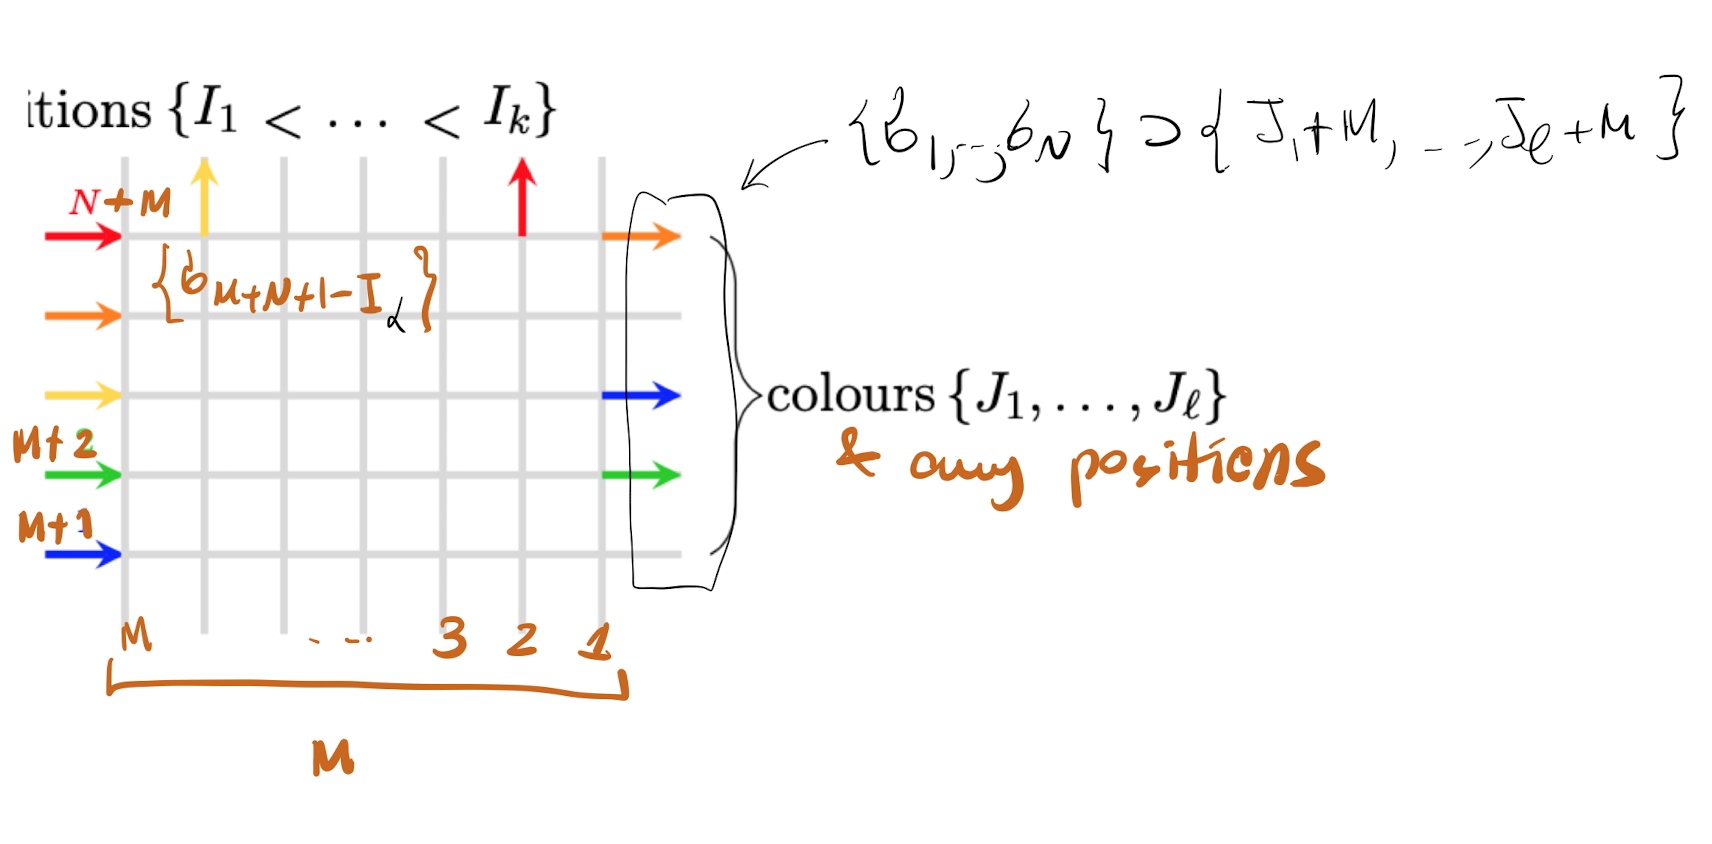 itions {I₁ < ... < Iₖ}
{σ₁,...,σ_N} ⊃ {J₁+M, ..., J_ℓ+M}
N+M
{σ_{M+N+1-I_α}}
colours {J₁, ..., J_ℓ}
M+2
& any positions
M+1
M ... 3 2 1
M